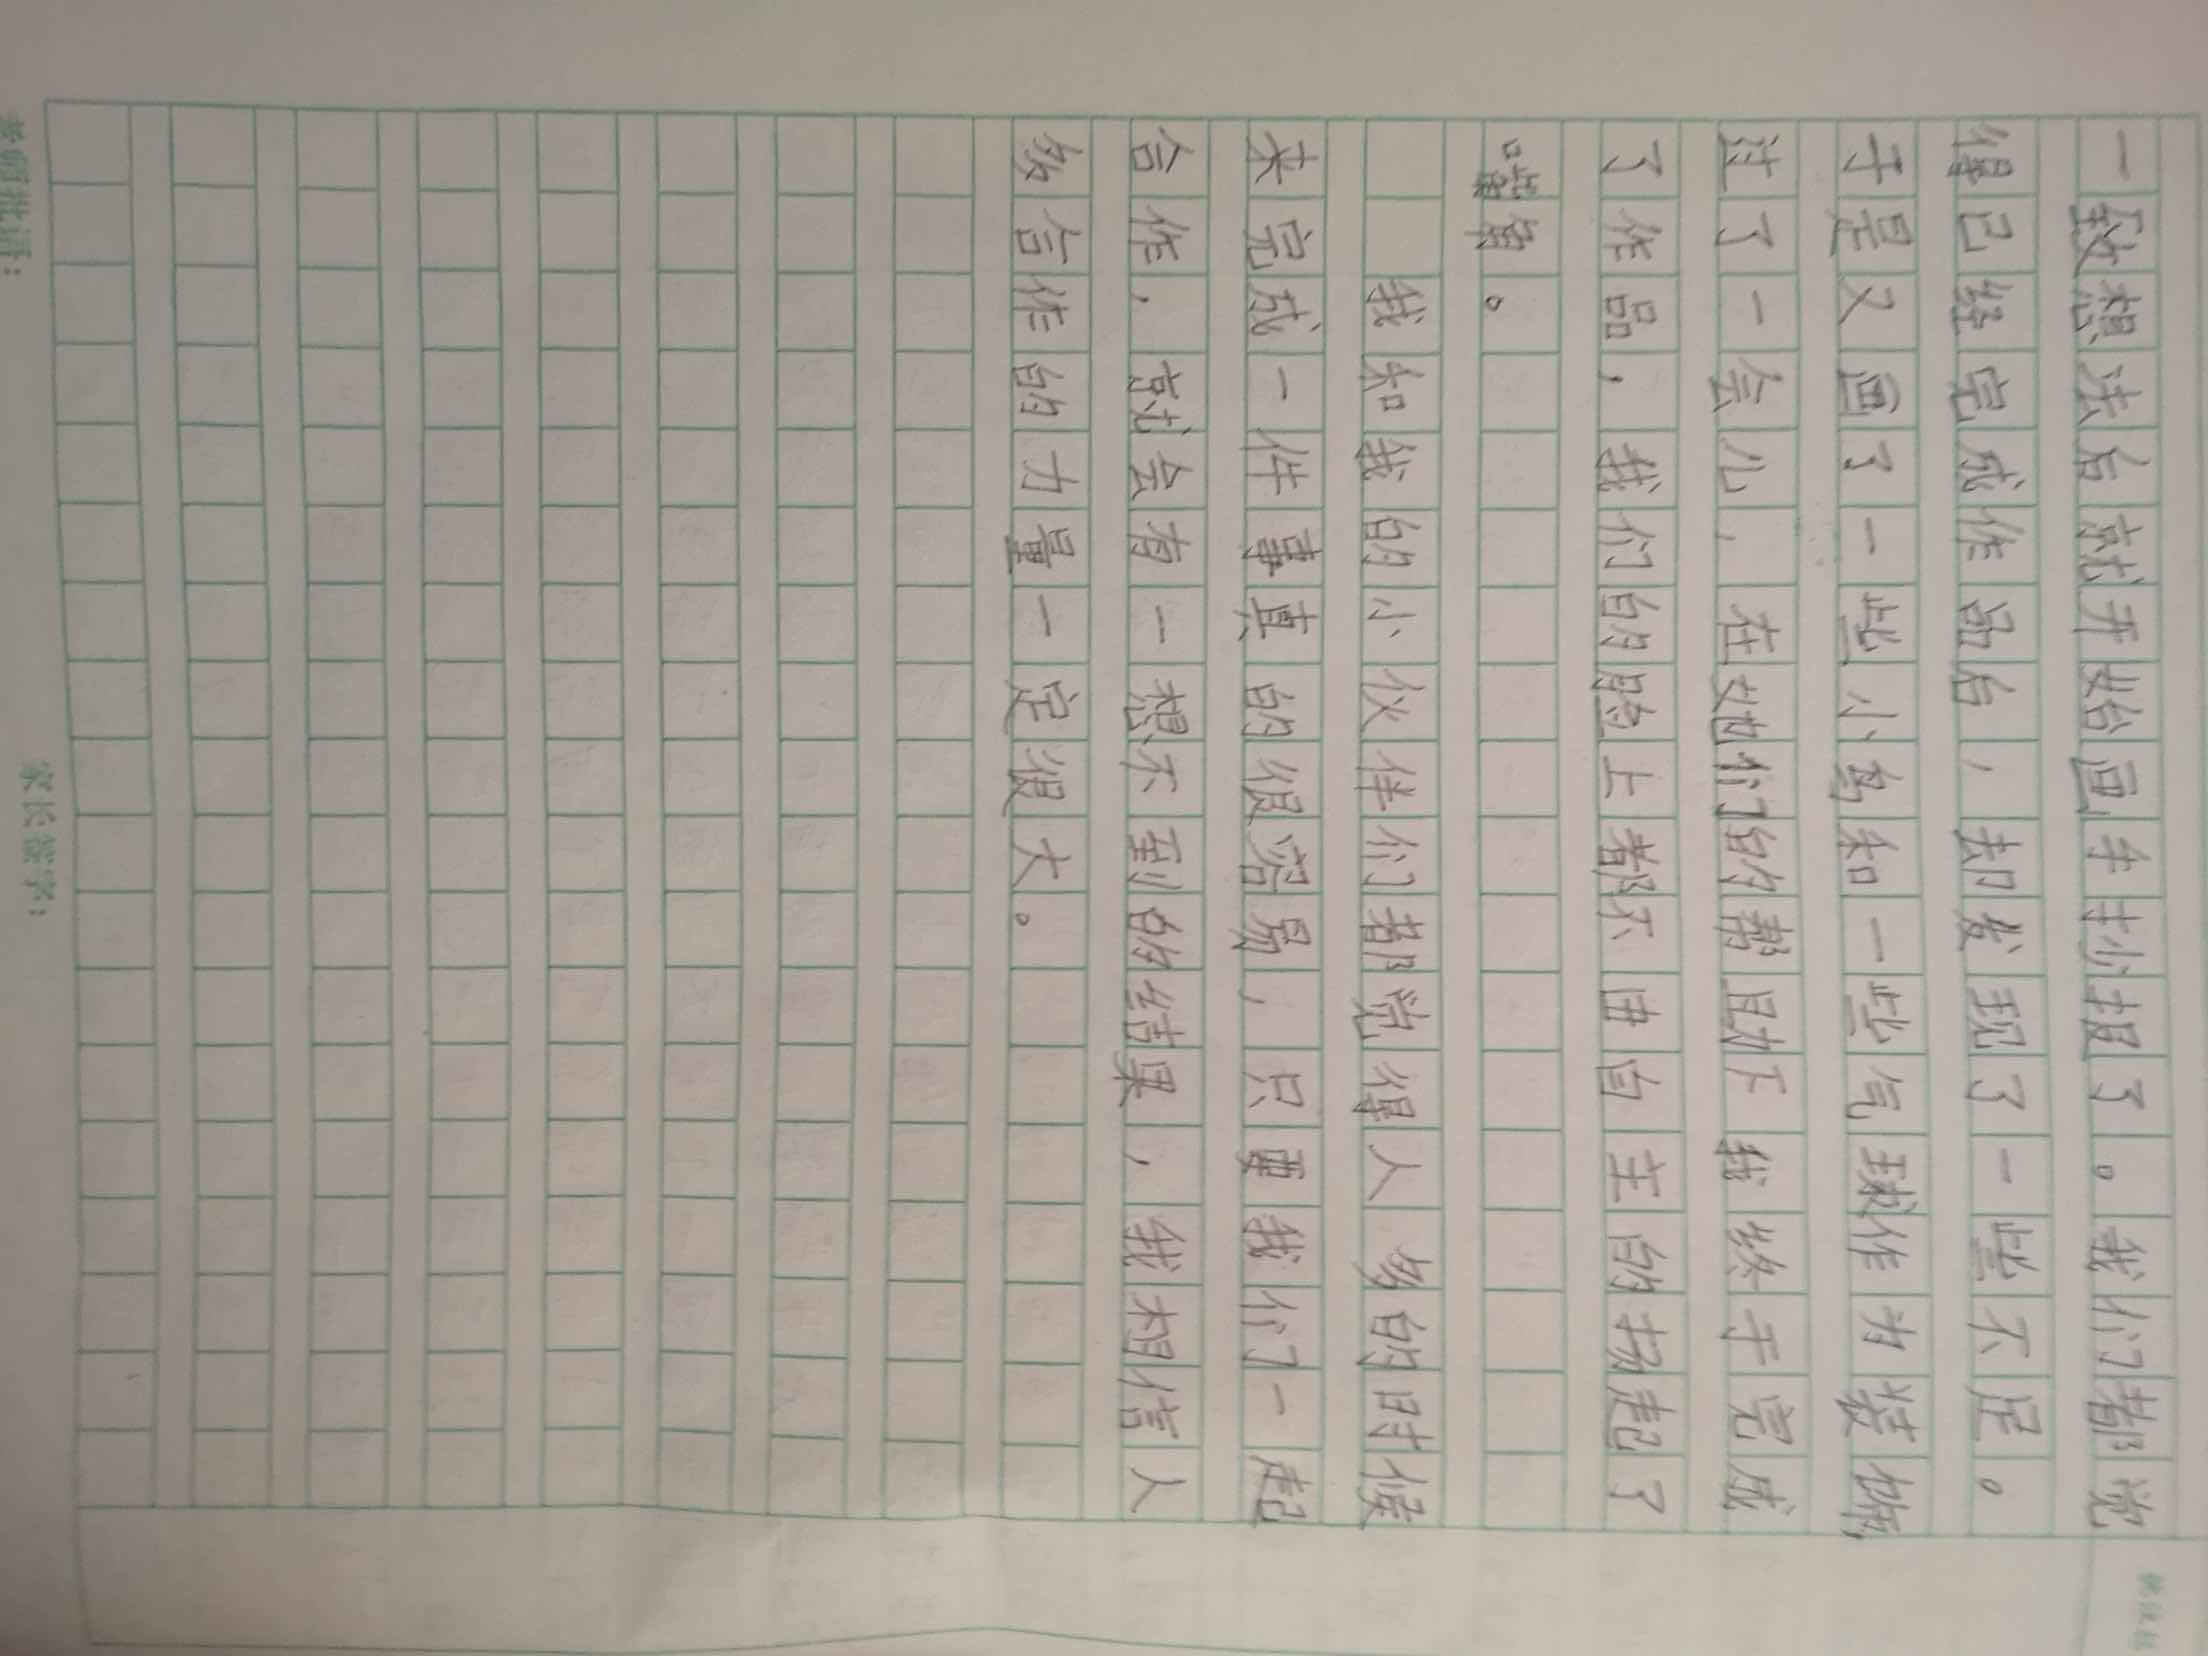 一致想法后就开始画手抄报了。我们都觉
得已经完成作品后，却发现了一些不足。
于是又画了一些小鸟和一些气球作为装饰，
过了一会儿，在她们的帮助下我终于完成
了作品，我们的脸上都不由自主的扬起了
嘴角。
我和我的小伙伴们都觉得人多的时候
来完成一件事真的很容易，只要我们一起
合作，就会有一想不到的结果，我相信人
多合作的力量一定很大。
老师批语：
家长签字：